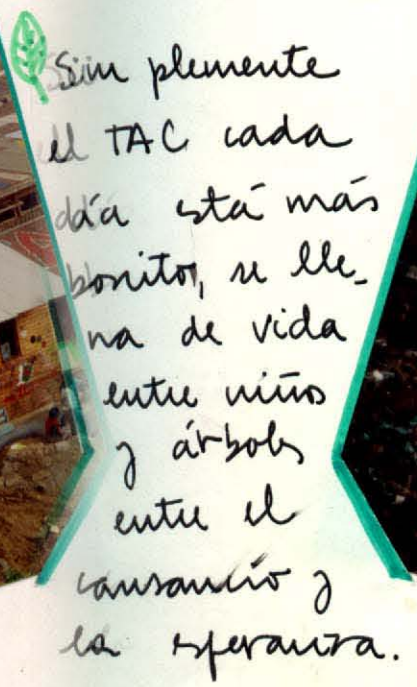 Simplemente
el TAC cada
día está más
bonito, se lle-
na de vida
entre niños
y árboles
entre el
cansancio y
la esperanza.